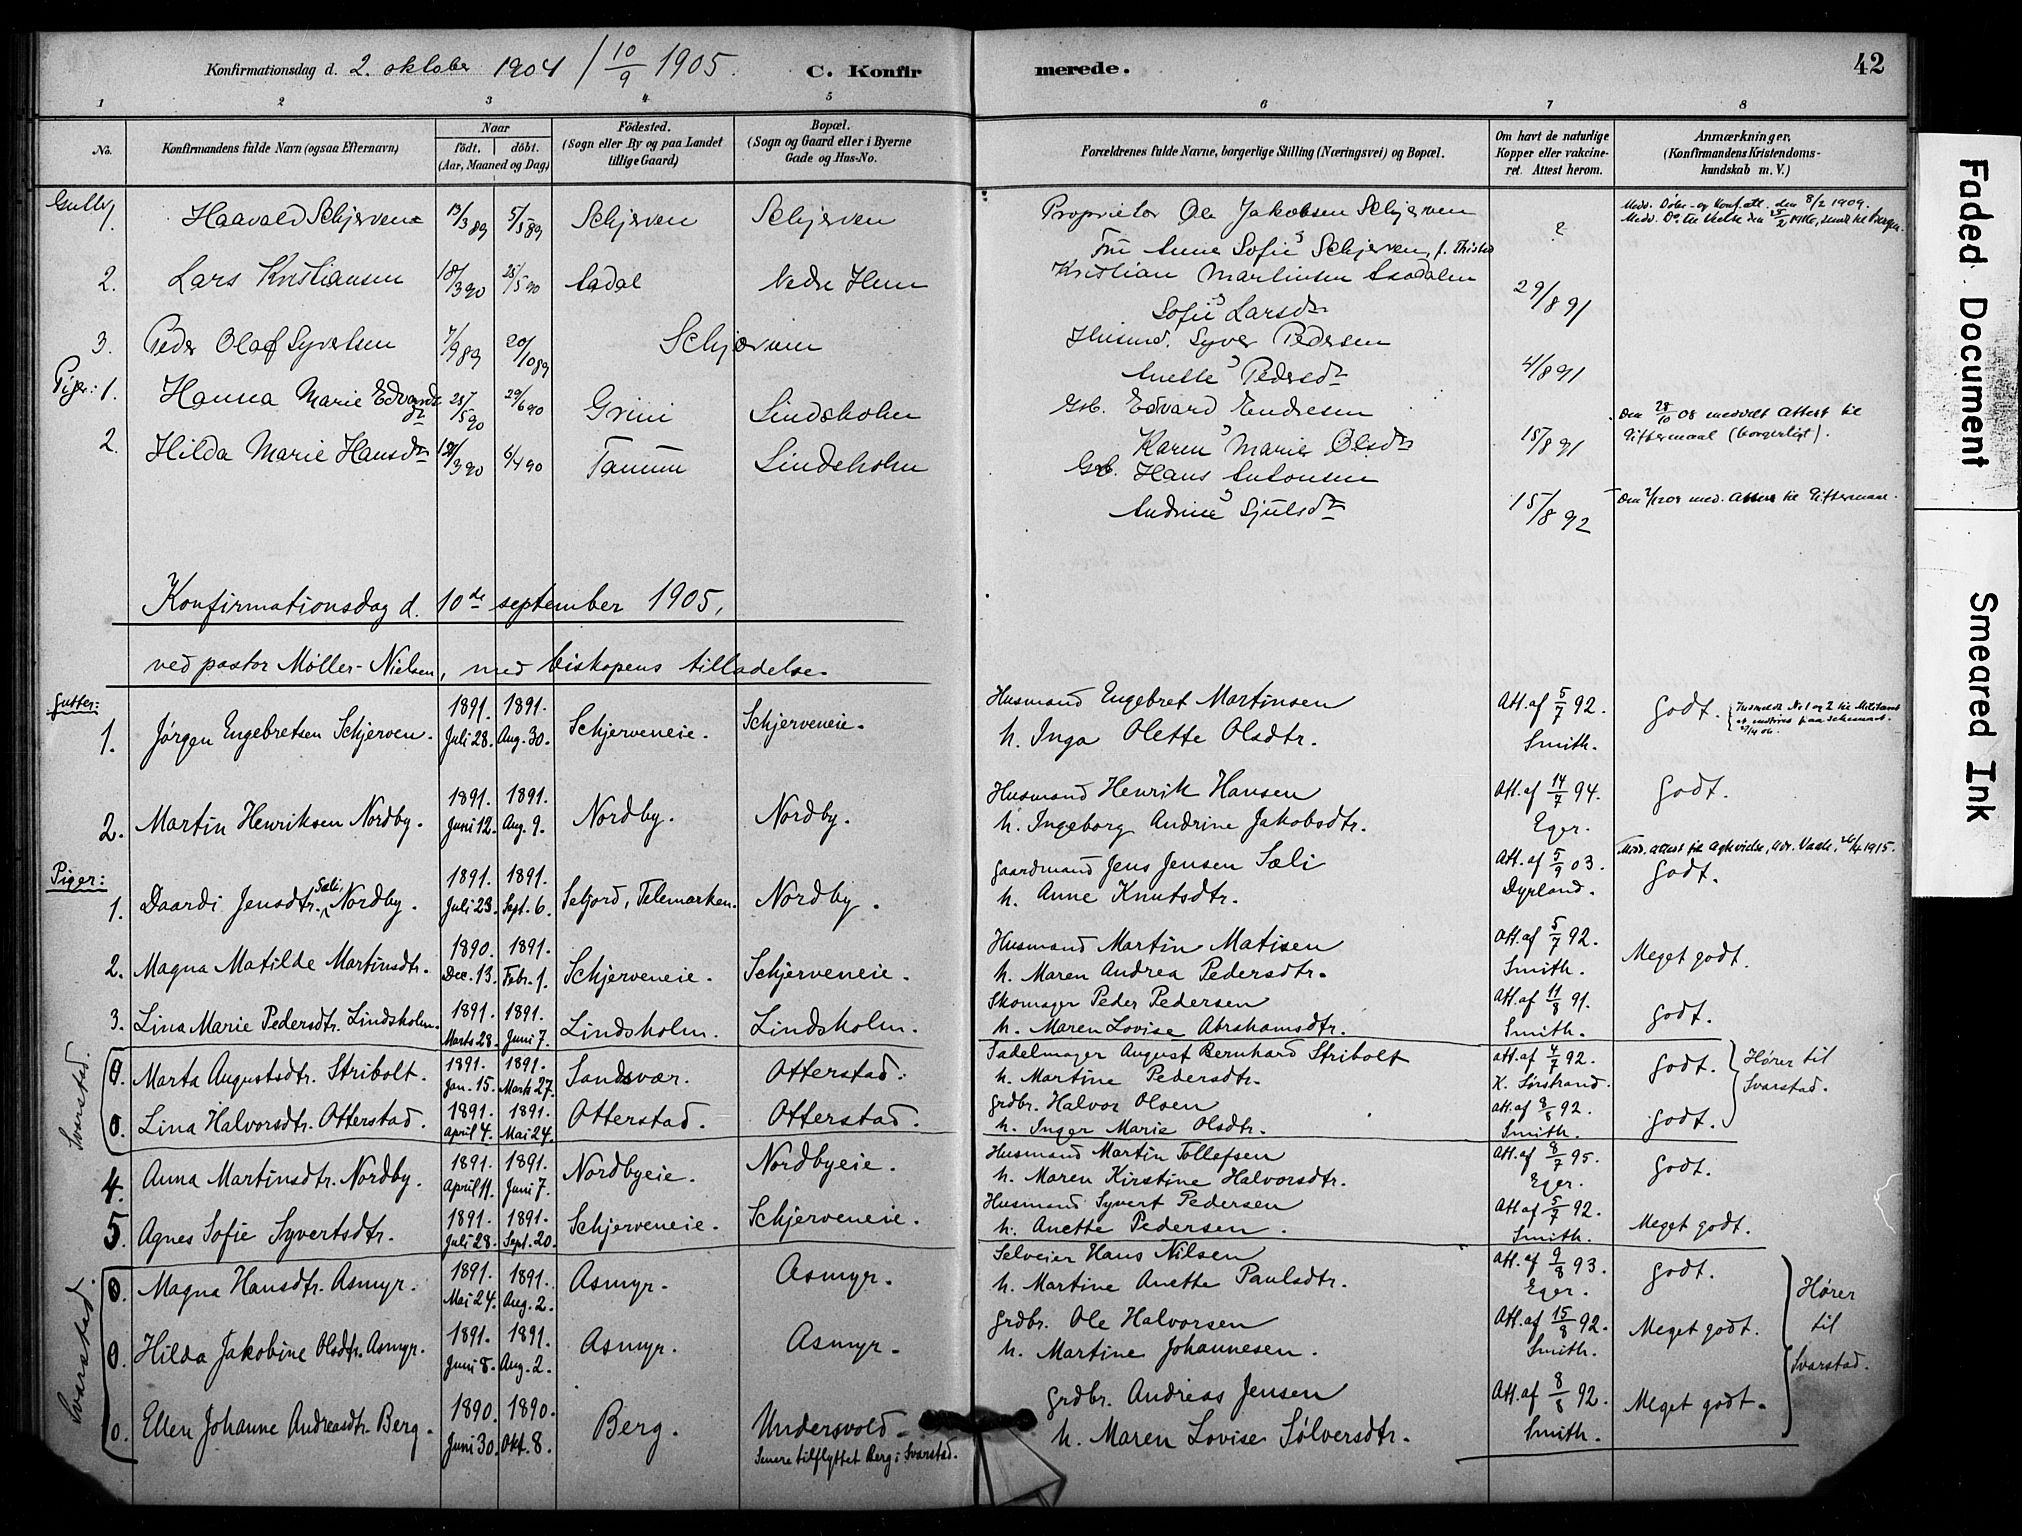 Konfirmationsdag d. 2. oktober 1904 / 10/9 1905. C. Konfirmerede. 42
1 2 3 4 5 6 7 8
No. Konfirmandens fulde Navn (ogsaa Efternavn) Naar født. døbt. (Aar, Maaned og Dag) Fødested. (Sogn eller By og paa Landet tillige Gaard) Bopæl. (Sogn og Gaard eller i Byerne Gade og Hus-No. Forældrenes fulde Navne, borgerlige Stilling (Næringsvei) og Bopæl. Om havt de naturlige Kopper eller vakcineret. Attest herom. Anmærkninger. (Konfirmandens Kristendomskundskab m. V.)
1. Haavald Schjerven 13/3 89 5/5 89 Schjerven Schjerven Proprietær Ole Jakobsen Schjerven ? Medd. Døbe- og Konf. att. den 8/2 1909.
Fru Anne Sofie Schjerven, f. Thisted
2. Lars Kristiansen 18/3 90 25/5 90 Aadal Nedre Hem Kristian Martinsen Aadalen 29/8 91
Sofie Larsdr
3. Peder Olaf Syvertsen 7/9 89 20/10 89 Schjerven Husmd. Syver Pedersen 4/8 91
Anette Pedersdr
Piger: 1. Hanna Marie Edvardsdr 25/5 90 29/6 90 Grini Lindsholm Gb. Edvard Endresen 15/8 91 Den 28/10 08 meddelt attest til Giftermaal (borgerligt).
Karen Marie Olsdr
2. Hilda Marie Hansdr 12/3 90 6/4 90 Tanum Lindsholm Gb. Hans Antonsen 15/8 92 med. attest til Giftermaal.
Andrine Sjulsdr
Konfirmationsdag d. 10de september 1905,
ved pastor Møller-Nielsen, med biskopens tilladelse.
Gutter:
1. Jørgen Engebretsen Schjerven. 1891. Juli 28. 1891. Aug. 30. Schjerveneie. Schjerveneie. Husmand Engebret Martinsen Att. af 5/7 92. Smith. Godt.
h. Inga Olette Olsdtr.
2. Martin Henriksen Nordby. 1891. Juni 12. 1891. Aug. 9. Nordby. Nordby. Husmand Henrik Hansen Att. af 14/7 94. Eger. Godt.
h. Ingeborg Andrine Jakobsdtr.
Piger:
1. Daardi Jensdtr. Sæli, Nordby. 1891. Juli 23. 1891. Sept. 6. Seljord, Telemarken. Nordby. Gaardmand Jens Jensen Sæli Att. af 5/9 03. Dyrland. Godt.
h. Anne Knutsdtr.
2. Magna Matilde Martinsdtr. 1890. Dec. 13. 1891. Febr. 1. Schjerveneie. Schjerveneie. Husmand Martin Matisen Att. af 5/7 92. Smith. Meget godt.
h. Maren Andrea Pedersdtr.
3. Lina Marie Pedersdtr. Lindsholm. 1891. Marts 28. 1891. Juni 7. Lindsholm. Lindsholm. Skomager Peder Pedersen Att. af 11/8 91. Smith. Godt.
h. Maren Lovise Abrahamsdtr.
Svarstad.
0. Marta Augustsdtr. Stribolt. 1891. Jan. 15. 1891. Marts 27. Sandsvær. Otterstad. Sadelmager August Bernhard Stribolt Att. af 4/7 92. K. Sørstrand. Godt. Hører til Svarstad.
h. Martine Pedersdtr.
0. Lina Halvorsdtr. Otterstad. 1891. April 4. 1891. Mai 24. Otterstad. Otterstad. Grdbr. Halvor Olsen Att. af 8/8 92. Smith. Godt.
h. Inger Marie Olsdtr.
4. Anna Martinsdtr. Nordby. 1891. April 11. 1891. Juni 7. Nordbyeie. Nordbyeie. Husmand Martin Tollefsen Att. af 8/7 95. Eger. Godt.
h. Maren Kirstine Halvorsdtr.
5. Agnes Sofie Syvertsdtr. 1891. Juli 28. 1891. Sept. 20. Schjerveneie. Schjerveneie. Husmand Syvert Pedersen Att. af 5/7 92. Smith. Meget godt.
h. Anette Pedersen.
Svarstad.
0. Magna Hansdtr. Asmyr. 1891. Mai 24. 1891. Aug. 2. Asmyr. Asmyr. Selveier Hans Nilsen Att. af 9/8 93. Eger. Godt. Hører til Svarstad.
h. Martine Anette Paulsdtr.
0. Hilda Jakobine Olsdtr. Asmyr. 1891. Juni 8. 1891. Aug. 2. Asmyr. Asmyr. Grdbr. Ole Halvorsen Att. af 15/8 92. Smith. Meget godt.
h. Martine Johannesen.
0. Ellen Johanne Andreasdtr. Berg. 1890. Juni 30. 1890. Okt. 8. Berg. Undersvold. Grdbr. Andreas Jensen Att. af 8/8 92. Smith. Meget godt.
Senere tilflyttet Berg i Svarstad. h. Maren Lovise Sølversdtr.
Faded Document
Smeared Ink